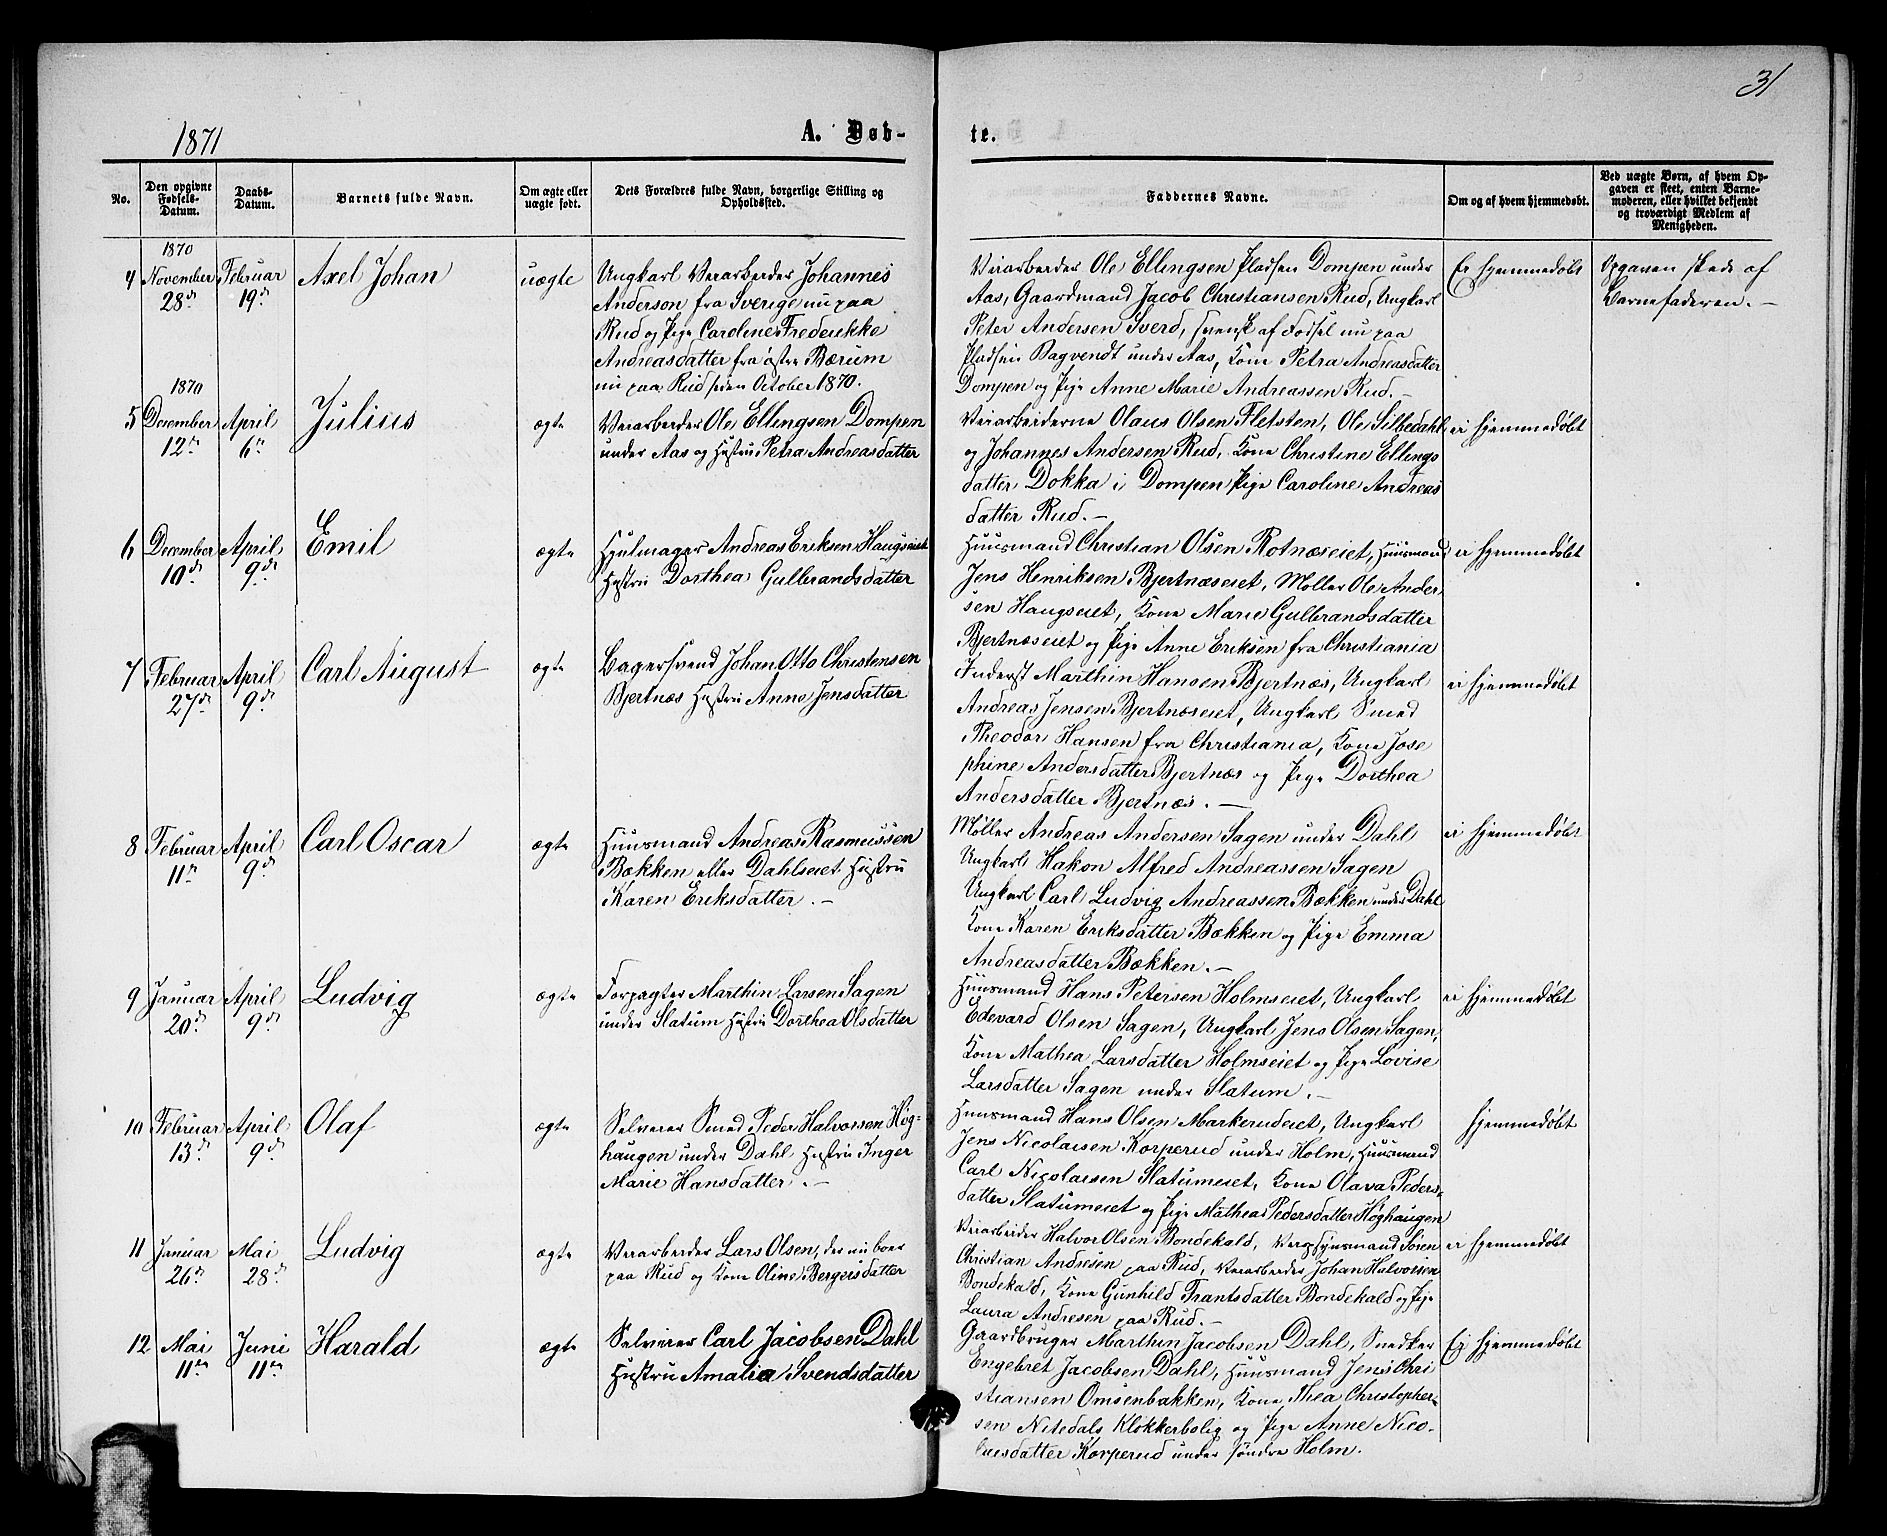 31
1871
A. Døb-
te.
No.
Den opgivne Fødsels-Datum.
Daabs-Datum.
Barnets fulde Navn.
Om ægte eller uægte født.
Dets Forældres fulde Navn, borgerlige Stilling og Opholdssted.
Faddernes Navne.
Om og af hvem hjemmedøbt.
Ved uægte Børn, af hvem Op-
gaven er skeet, enten Barne-
moderen, eller hvilket bekjendt
og troværdigt Medlem af
Menigheden.
1870
4 November 28de
Februar 19de
Axel Johan
uægte
Ungkarl Verarbeider Johannes
Anderson fra Sverige nu paa
Rud og Pige Caroline Frederikke
Andreasdatter fra østre Bærum
nu paa Rud siden October 1870.
Verarbeider Ole Ellingsen Pladsen Dompen under
Aas, Gaardmand Jacob Christiansen Rud, Ungkarl
Peter Andersen Sverd, svensk af Fødsel nu paa
Pladsen Bagvendt under Aas, Kone Petra Andreasdatter
Dompen og Pige Anne Marie Andreassen Rud.-
Er hjemmedøbt
Opgaven skede af
Barnefaderen.-
1870
5 December 12te
April 6te
Julius
ægte
Verarbeider Ole Ellingsen Dompen
under Aas og Hustru Petra Andreasdatter
Verarbeiderne Olaus Olsen Fletsten, Ole Silbedahl
og Johannes Andersen Rud, Kone Christine Ellings
datter Dokka i Dompen Pige Caroline Andreas
datter Rud.-
ei hjemmedøbt
6 December 10de
April 9de
Emil
ægte
Hjulmager Andreas Eriksen Haugseiet
Hustru Dorthea Gulbrandsdatter
Huusmand Christian Olsen Rotnæseiet, Huusmand
Jens Henriksen Bjertnæseiet, Møller Ole Ander
sen Haugseiet, Kone Marie Gulbrandsdatter
Bjertnæseiet og Pige Anne Eriksen fra Christiania
ei hjemmedøbt
7 Februar 27de
April 9de
Carl August
ægte
Bagersvend Johan Otto Christensen
Bjertnæs Hustru Anne Jensdatter
Inderst Marthin Hansen Bjertnæs, Ungkarl
Andreas Jensen Bjertnæseiet, Ungkarl Smed
Theodor Hansen fra Christiania, Kone Jose
phine Andersdatter Bjertnæs og Pige Dorthea
Andersdatter Bjertnæs.-
ei hjemmedøbt
8 Februar 11te
April 9de
Carl Oscar
ægte
Huusmand Andreas Rasmussen
Bækken eller Dahlseiet Hustru
Karen Eriksdatter.-
Møller Andreas Andersen Sagen under Dahl
Ungkarl Hakon Alfred Andreassen Sagen
Ungkarl Carl Ludvig Andreassen Bækken under Dahl
Kone Karen Eriksdatter Bækken og Pige Emma
Andreasdatter Bækken.-
ei hjemmedøbt
9 Januar 20de
April 9de
Ludvig
ægte
Forpagter Marthin Larsen Sagen
under Slatum Hustru Dorthea Olsdatter
Huusmand Hans Petersen Holmseiet, Ungkarl
Edevard Olsen Sagen, Ungkarl Jens Olsen Sagen,
Kone Mathea Larsdatter Holmseiet og Pige Lovise
Larsdatter Sagen under Slatum.-
ei hjemmedøbt
10 Februar 13de
April 9de
Olaf
ægte
Selveier Smed Peder Halvorsen Høg-
haugen under Dahl Hustru Inger
Marie Hansdatter.-
Huusmand Hans Olsen Markerudeiet, Ungkarl
Jens Nicolaisen Korperud under Holm, Huusmand
Carl Nicolaisen Slatumeiet, Kone Olava Peders-
datter Slatumeiet og Pige Mathea Pedersdatter Høghaugen
hjemmedøbt
11 Januar 26de
Mai 28de
Ludvig
ægte
Verarbeider Lars Olsen, der nu boer
paa Rud og Kone Oline Bergersdatter
Verarbeider Halvor Olsen Bondekald, Søren
Christian Andresen paa Rud, Verarbeider Johan Halvorsen
Bondekald, Kone Gunhild Frantsdatter Bondekald og Pige
Laura Andresen paa Rud.-
er hjemmedøbt
12 Mai 11te
Juni 11te
Harald
ægte
Selveier Carl Jacobsen Dahl
Hustru Amalia Svendsdatter
Gaardbruger Marthin Jacobsen Dahl, Snedker
Engebret Jacobsen Dahl, Huusmand Jens Chri
stiansen Omsenbakken, Kone Thea Christopher-
sen Nitedals Klokkerbolig og Pige Anne Nico-
laisdatter Korperud under søndre Holm.
Ei hjemmedøbt